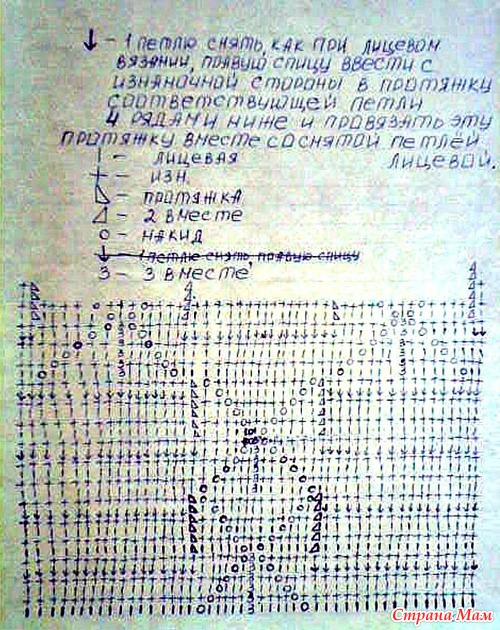 ↓ - 1 ПЕТЛЮ СНЯТЬ, КАК ПРИ ЛИЦЕВОМ
ВЯЗАНИИ, ПРАВУЮ СПИЦУ ВВЕСТИ С
ИЗНАНОЧНОЙ СТОРОНЫ В ПРОТЯЖКУ
СООТВЕТСТВУЮЩЕЙ ПЕТЛИ
4 РЯДАМИ НИЖЕ И ПРОВЯЗАТЬ ЭТУ
ПРОТЯЖКУ ВМЕСТЕ СО СНЯТОЙ ПЕТЛЁЙ
| - ЛИЦЕВАЯ ЛИЦЕВОЙ.
+ - ИЗН.
◺ - ПРОТЯЖКА
◿ - 2 ВМЕСТЕ
О - НАКИД
↓ - 1 ПЕТЛЮ СНЯТЬ, ПРАВУЮ СПИЦУ
3 - 3 ВМЕСТЕ
Страна Мам